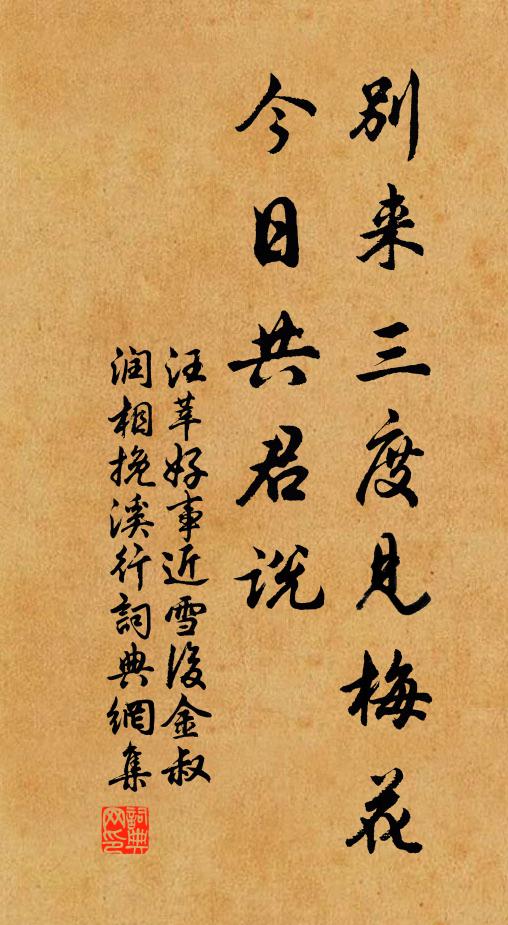 别来三度见梅花
今日共君说
汪莘好事近雪後金叔
润相挽溪行詞典網集
詞典网印